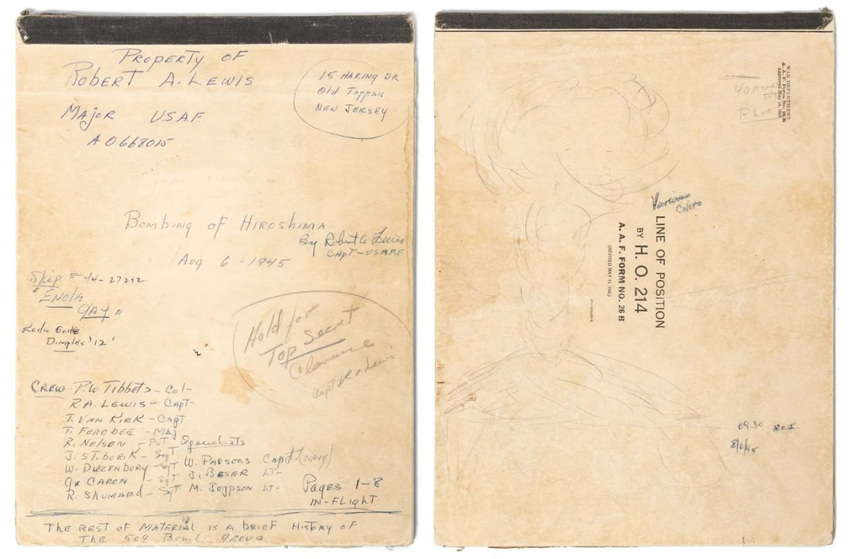 Property of
Robert A. Lewis
Major USAF
AO668015
15 Haring Dr
Old Tappan
New Jersey
Bombing of Hiroshima
By Robert A Lewis
Capt-USAAF
Aug 6-1945
Ship # 44-27292
"Enola
Gay"
Radio Code
Dimples '12'
Hold for
Top Secret
Clearance
Capt R A Lewis
Crew-P.W Tibbets-Col-
R.A. Lewis-Capt-
T. Van Kirk-Capt
T. Ferebee-Maj
R. Nelson-Pvt Specialists
J. Stiborik-Sgt W. Parsons Capt-(Navy)
W. Duzenbury-Sgt J. Besar Lt-
Caron-Sgt M. Jeppson Lt-
R. Shumard-Sgt
Pages 1-8
In-Flight-
The rest of material is a brief history of
The 509 Bomb. Group
WAR DEPARTMENT
A. A. F. Form No. 26 B
LINE OF POSITION
BY H. O. 214
A. A. F. FORM NO. 26 B
09:30
8/6/45